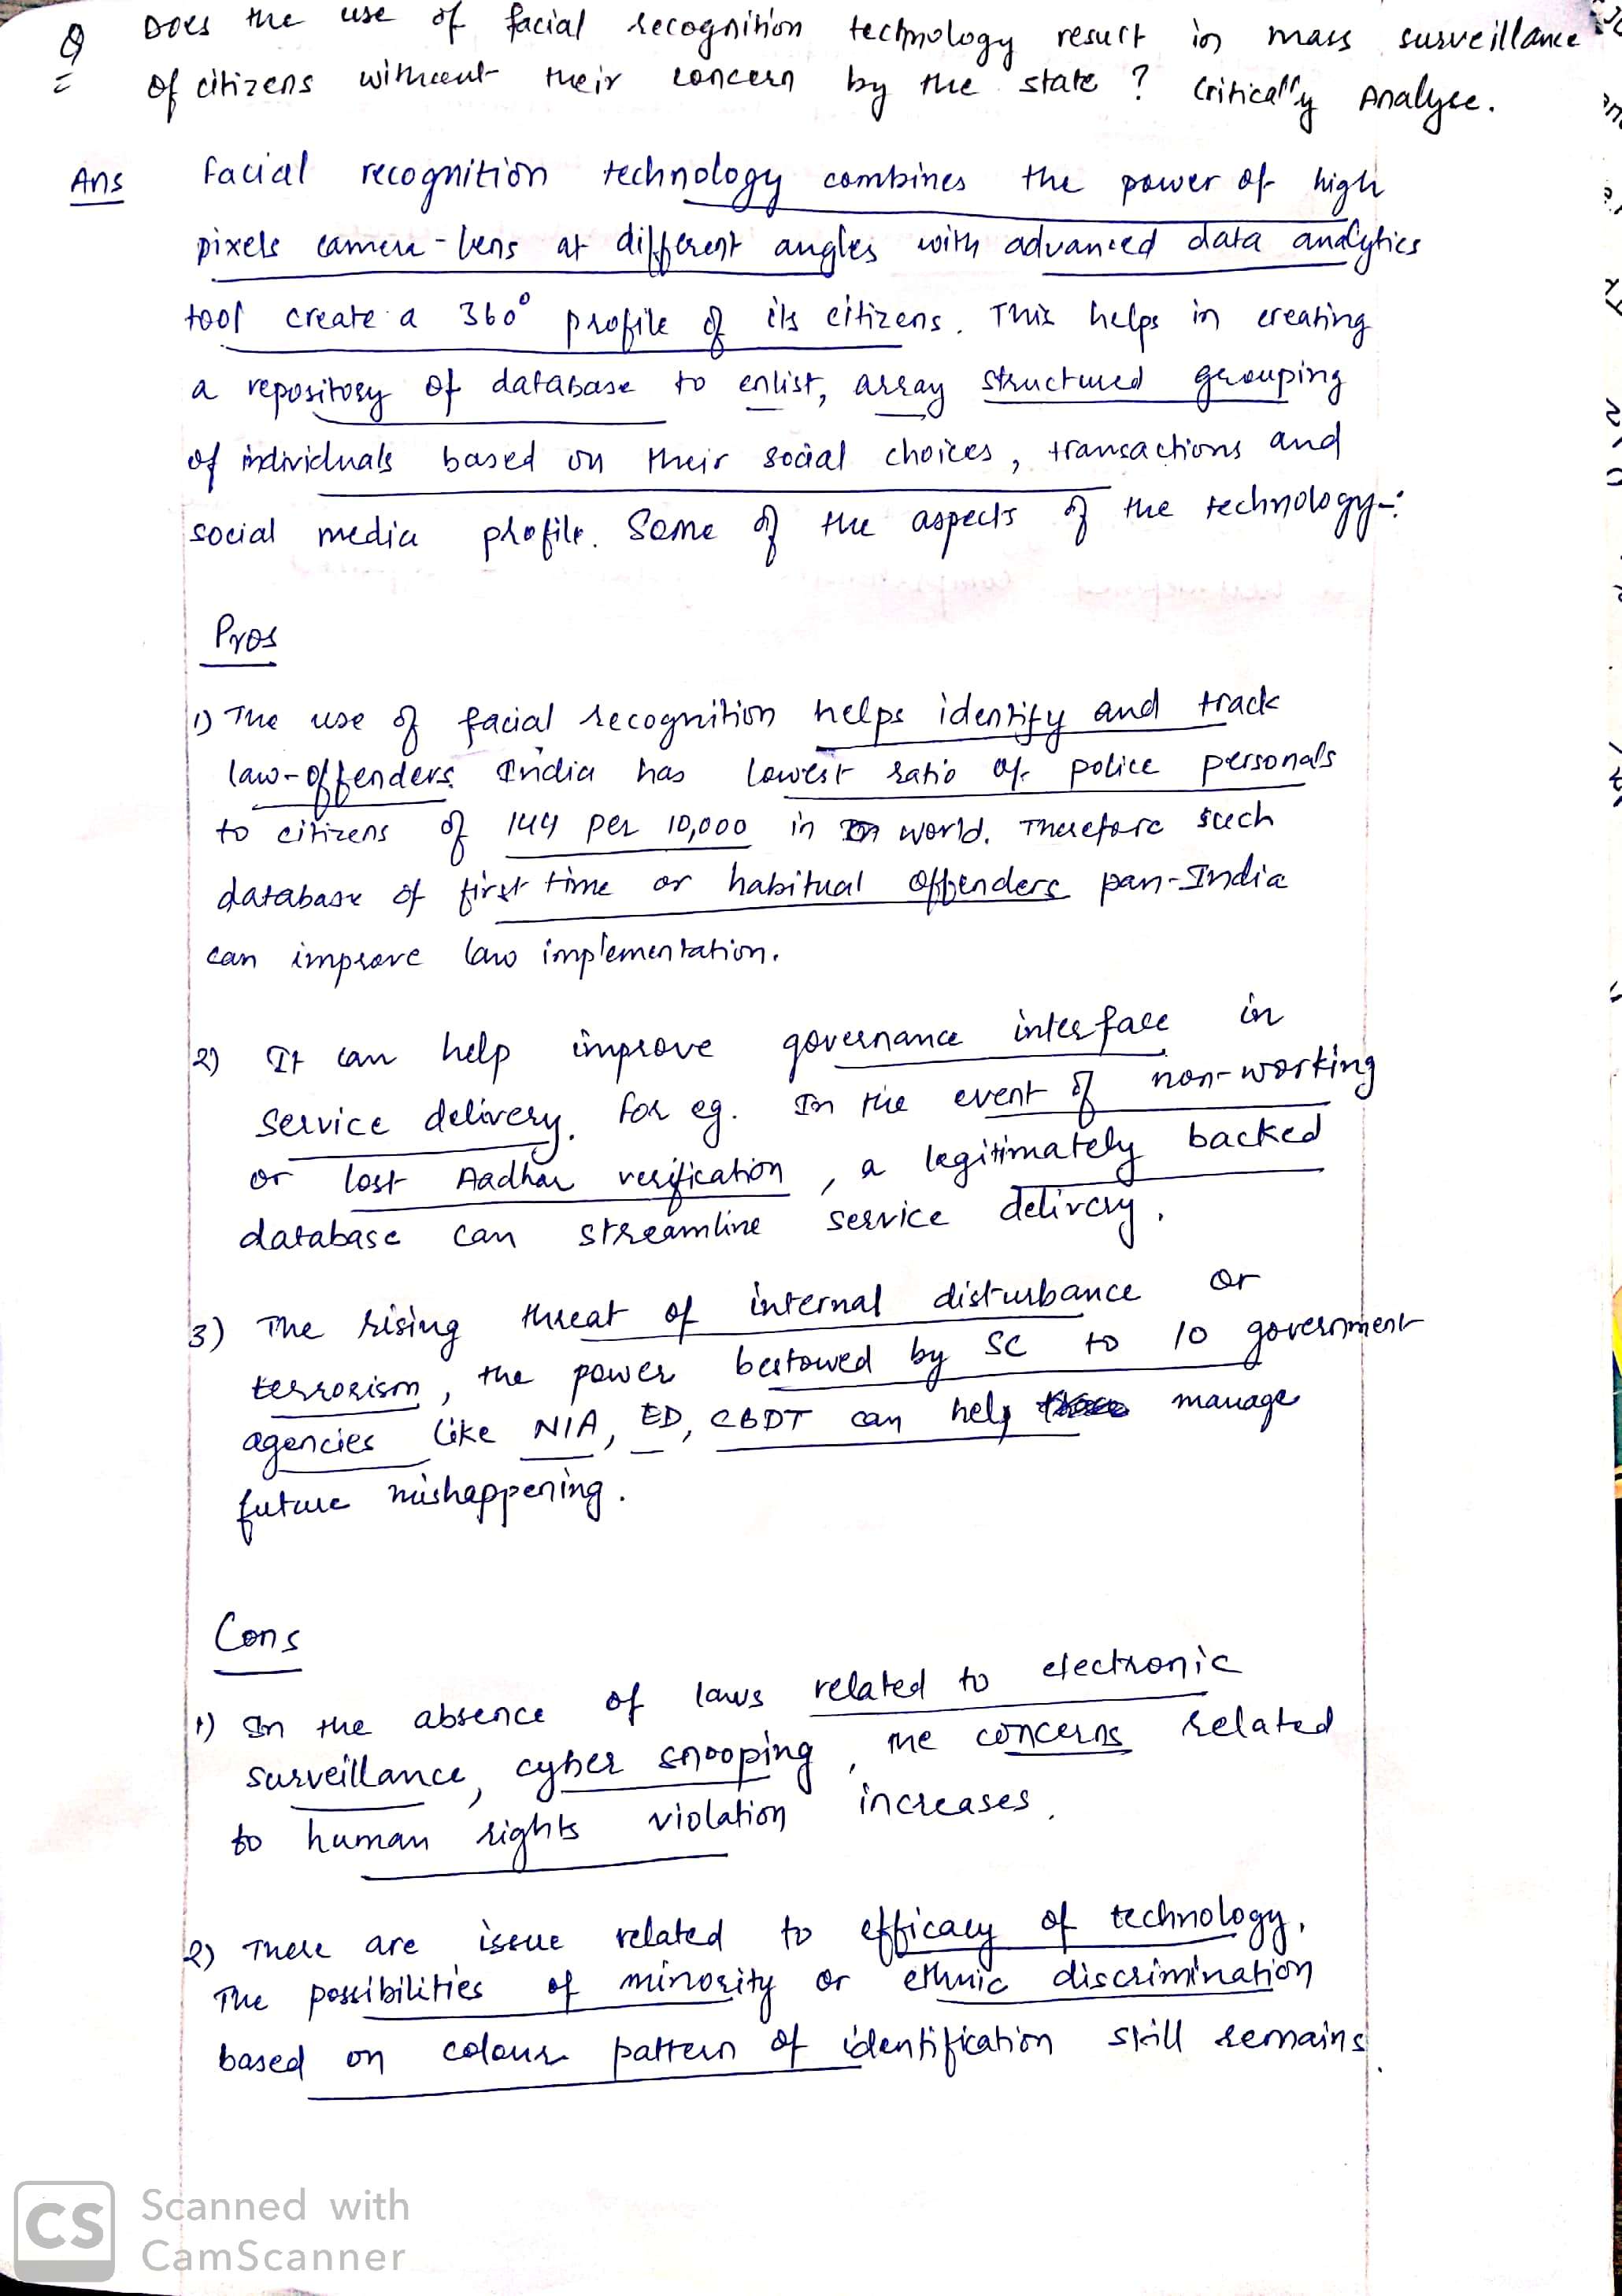 Q Does the use of facial recognition technology result in mass surveillance
of citizens without their concern by the state ? Critically Analyse.
Ans Facial recognition technology combines the power of high
pixels camera-lens at different angles with advanced data analytics
tool create a 360° profile of its citizens. This helps in creating
a repository of database to enlist, array structured grouping
of individuals based on their social choices, transactions and
social media profile. Some of the aspects of the technology-:
Pros
1) The use of facial recognition helps identify and track
law-offenders. India has lowest ratio of police personals
to citizens of 144 per 10,000 in world. Therefore such
database of first time or habitual offenders pan-India
can improve law implementation.
2) It can help improve governance interface in
service delivery. For eg. In the event of non-working
or lost Aadhar verification, a legitimately backed
database can streamline service delivery.
3) The rising threat of internal disturbance or
terrorism, the power bestowed by SC to 10 government
agencies like NIA, ED, CBDT can help manage
future mishappening.
Cons
1) In the absence of laws related to electronic
surveillance, cyber snooping, the concerns related
to human rights violation increases.
2) There are issue related to efficacy of technology.
The possibilities of minority or ethnic discrimination
based on colour pattern of identification still remains.
CS Scanned with
CamScanner